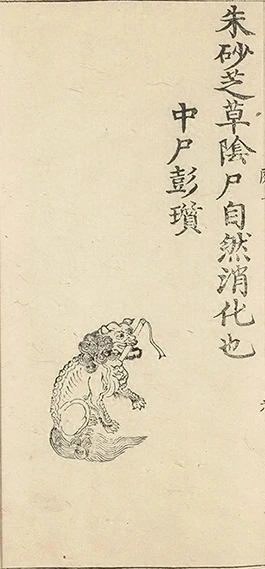 朱砂芝草陰尸自然消化也
中尸彭瓆